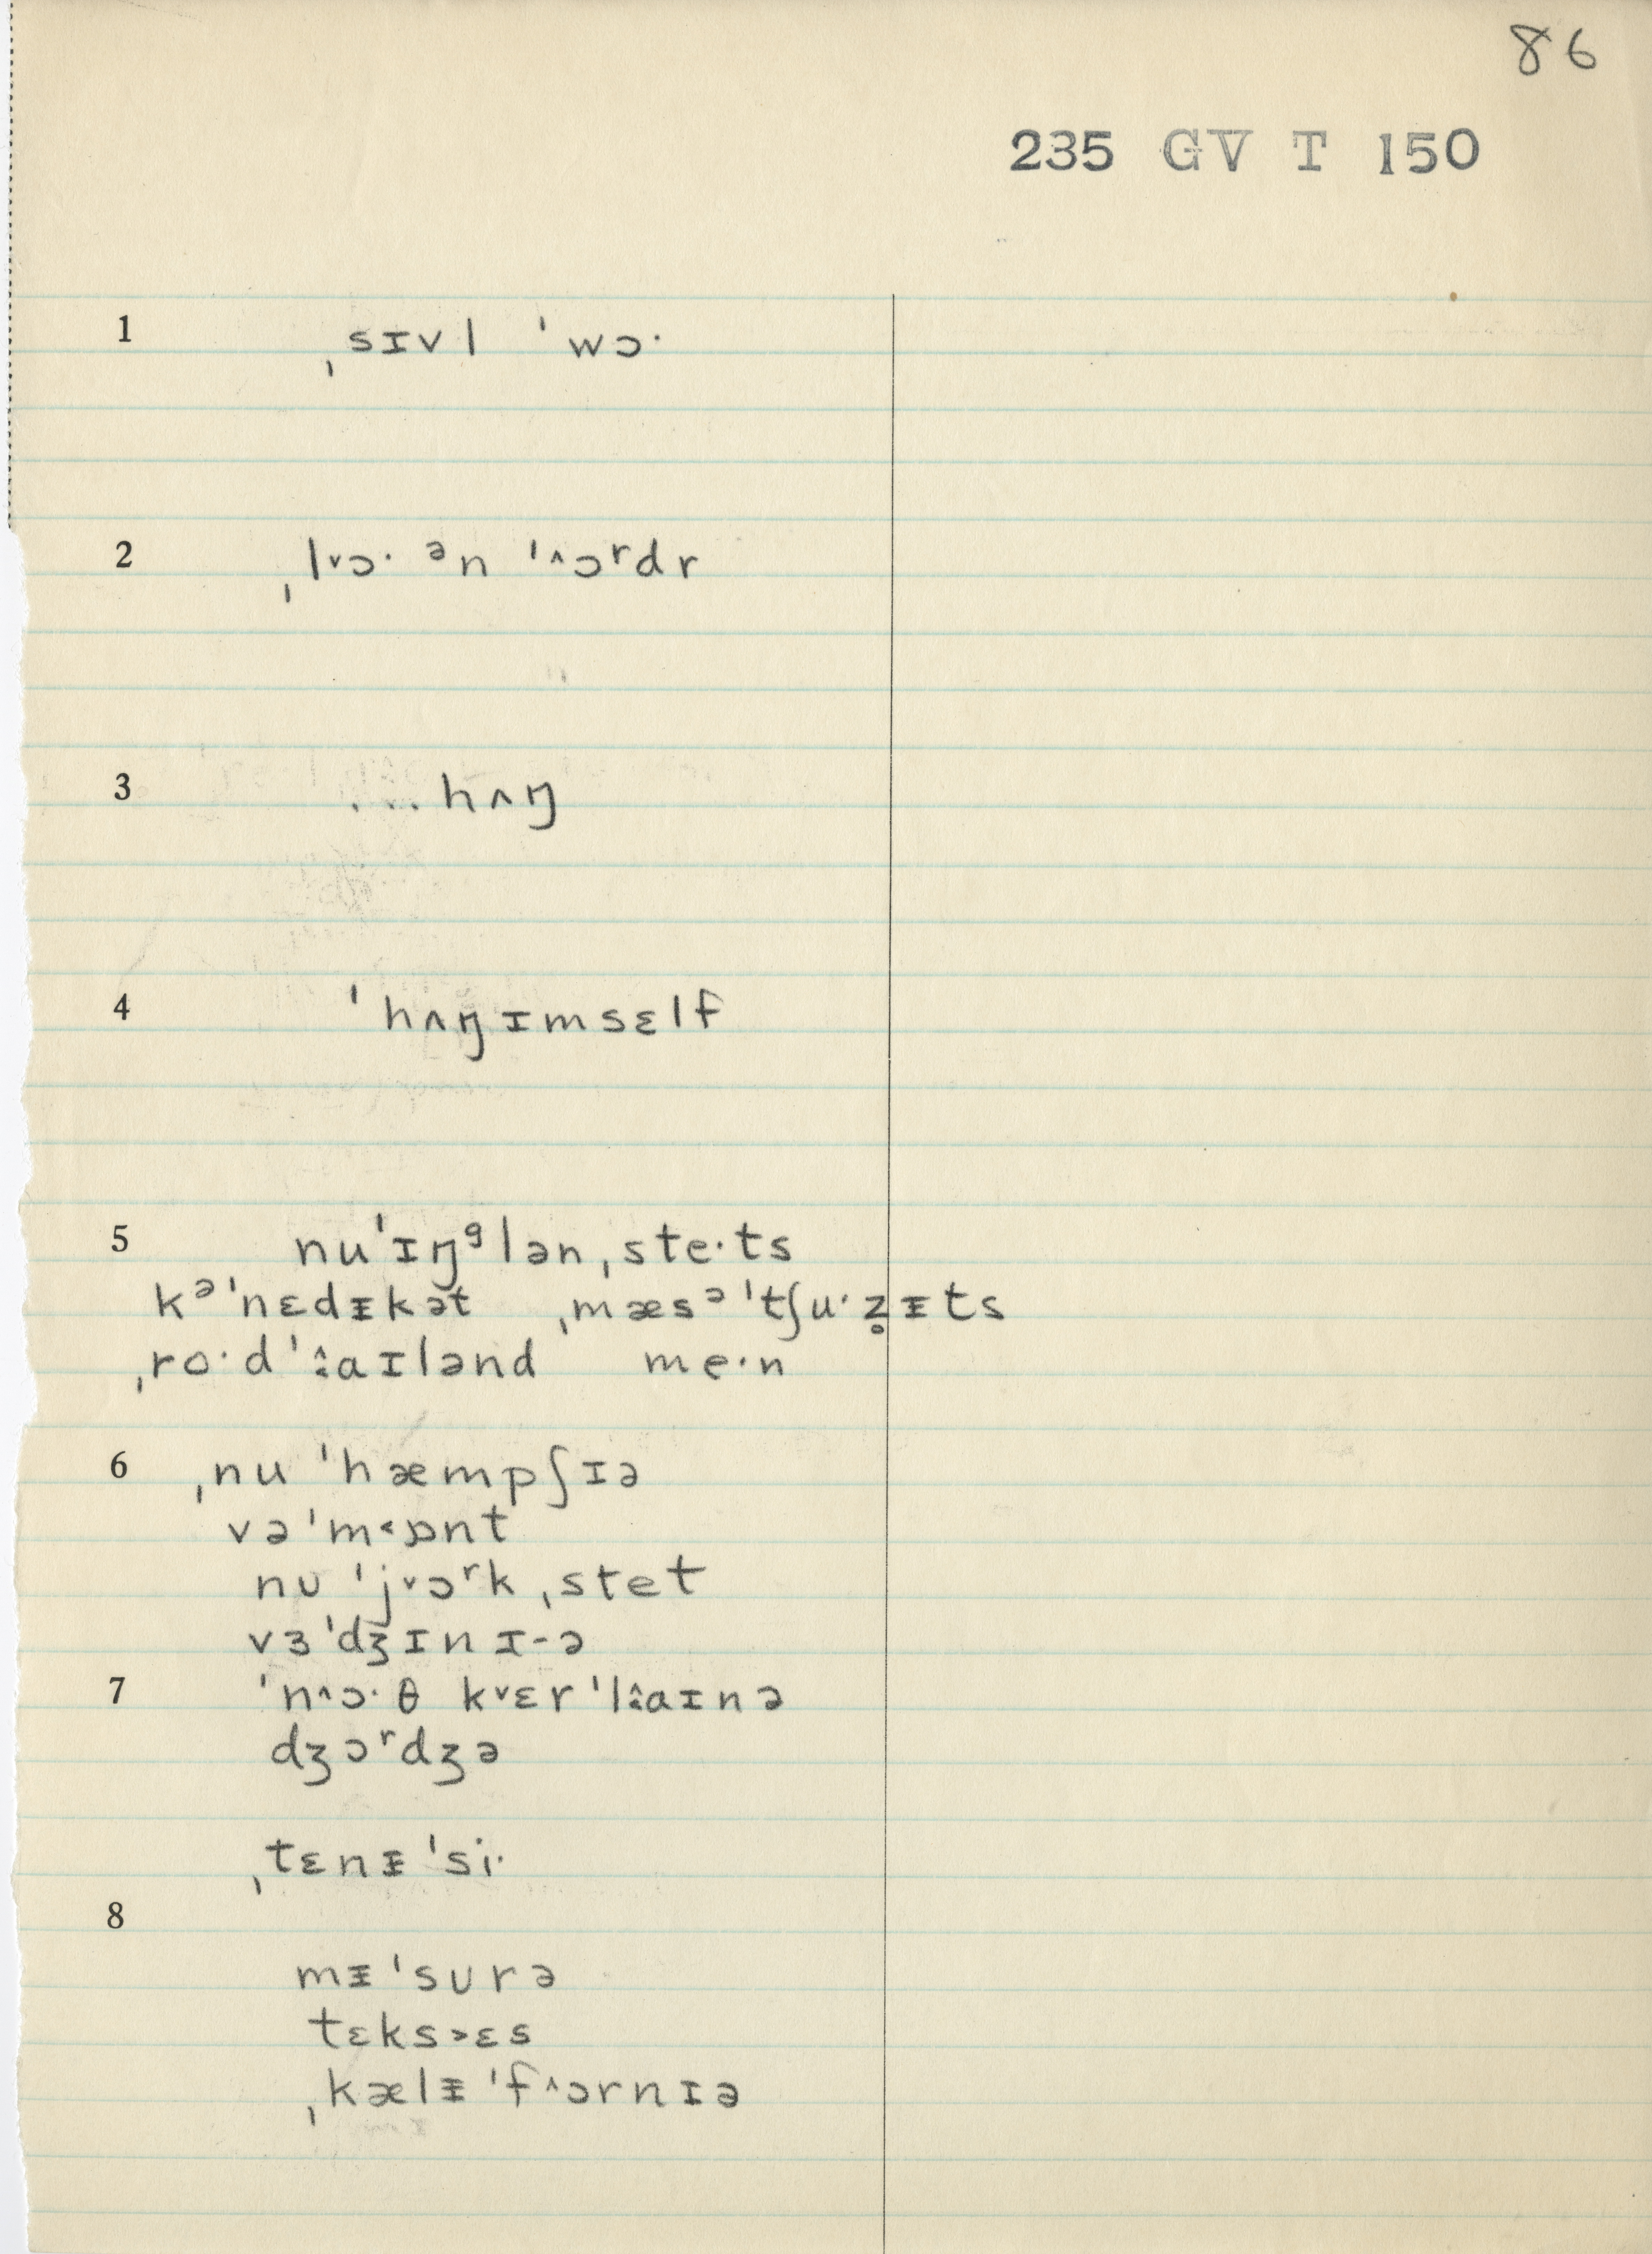 86
235 GV T 150
1 ˌsɪvl ˈwɔ·
2 ˌl˅ɔ· ᵊn ˈ˄ɔʳdr
3 ...hʌŋ
4 ˈhʌŋɪmsɛlf
5 nuˈɪŋᶢlənˌste·ts
kᵊˈnɛdᵻkət ˌmæsᵊˈtʃu·z̥ᵻts
ˌro·dˈ˄aɪlənd me·n
6 ˌnu ˈhæmpʃɪə
vəˈm˂ɒnt
nᴜ ˈj˅ɔʳkˌstet
vɜˈdʒɪnɪ-ə
7 ˈn˄ɔ·θ k˅ɛrˈl˄aɪnə
dʒɔʳdʒə
ˌtɛnᵻˈsi·
8
mᵻˈsᴜrə
tɛks˃ɛs
ˌkælᵻˈf˄ɔrnɪə